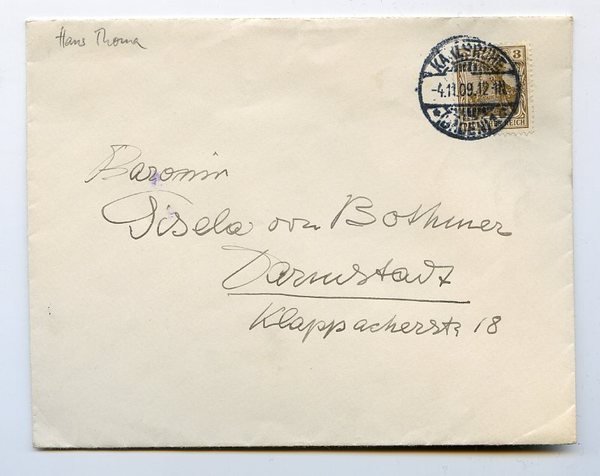 Hans Thoma
KARLSRUHE
-4.11.09.12-1N
* (BADEN) *
3
REICH
Baronin
Gisela von Bothmer
Darmstadt
Klappacherstr. 18